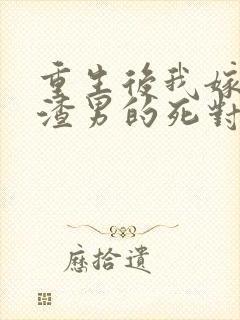 重生後我嫁
渣男的死對
歷拾遺